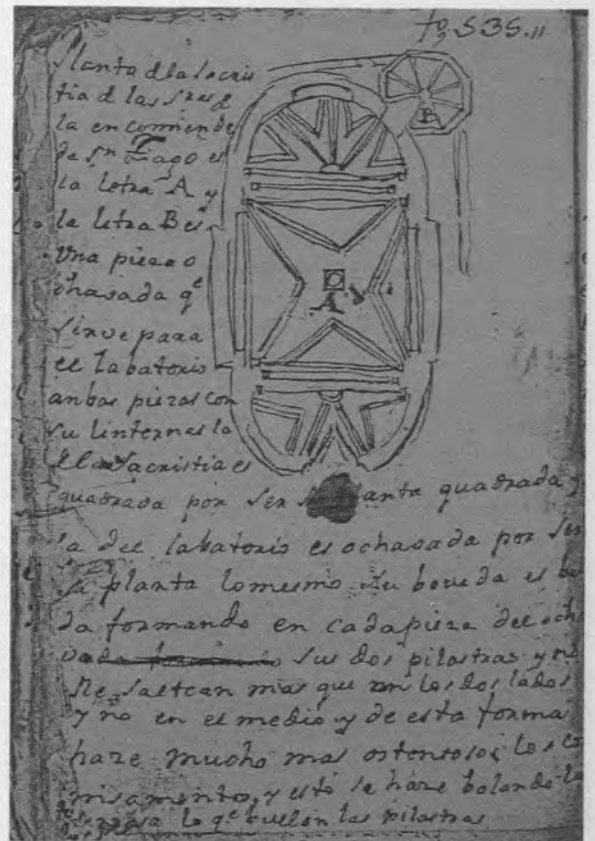 fo. 535.11
planta d la sacris
tia d las Sras d
la encomienda
de Sn Tiago es
la letra A y
la letra B es
Una pieza o
chavada qe
sirve para
el labatorio
anbas piezas con
su linternas la
d la sacristia es
quadrada por ser planta quadrada y
la del labatorio es ochavada por ser
su planta lo mesmo su boveda es
da formando en cada pieza del och
vado sus dos pilastras y no
se saltean mas que en los dos lados
y no en el medio y de esta forma
haze mucho mas ostentoso los co
rnisamentos, y esto se haze bolando la
lo qe buelan las pilastras
A
B